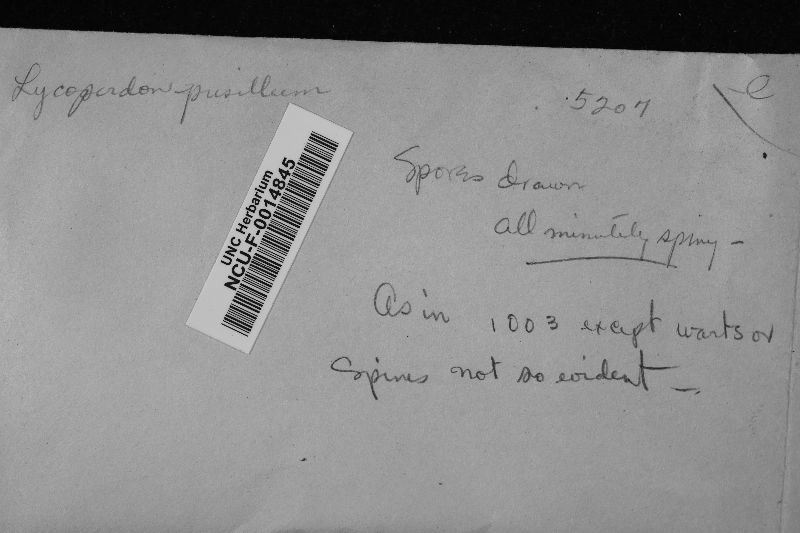 Lycoperdon pusillum
5207
e
Spores drawn
all minutely spiny –
As in 1003 except warts or
Spines not so evident –
UNC Herbarium
NCU-F-0014845